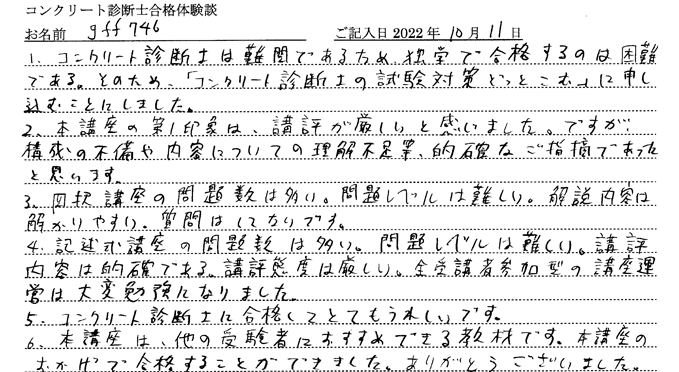 コンクリート診断士合格体験談
お名前 gff746 ご記入日 2022年 10月 11日
1. コンクリート診断士は難関であるため独学で合格するのは困難
である。そのため、「コンクリート診断士の試験対策どっとこむ」に申し
込むことにしました。
2. 本講座の第1印象は、講評が厳しいと感じました。ですが、
構成の不備や内容についての理解不足等、的確なご指摘であった
と思います。
3. 四択講座の問題数は多い。問題レベルは難しい。解説内容は
解かりやすい。質問はしてないです。
4. 記述式講座の問題数は多い。問題レベルは難しい。講評
内容は的確である。講評態度は厳しい。全受講者参加型の講座運
営は大変勉強になりました。
5. コンクリート診断士に合格してとてもうれしいです。
6. 本講座は、他の受験者におすすめできる教材です。本講座の
おかげで合格することができました。ありがとうございました。